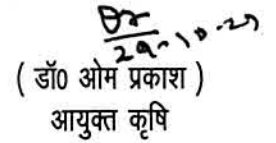 29-10-25
( डॉ0 ओम प्रकाश )
आयुक्त कृषि